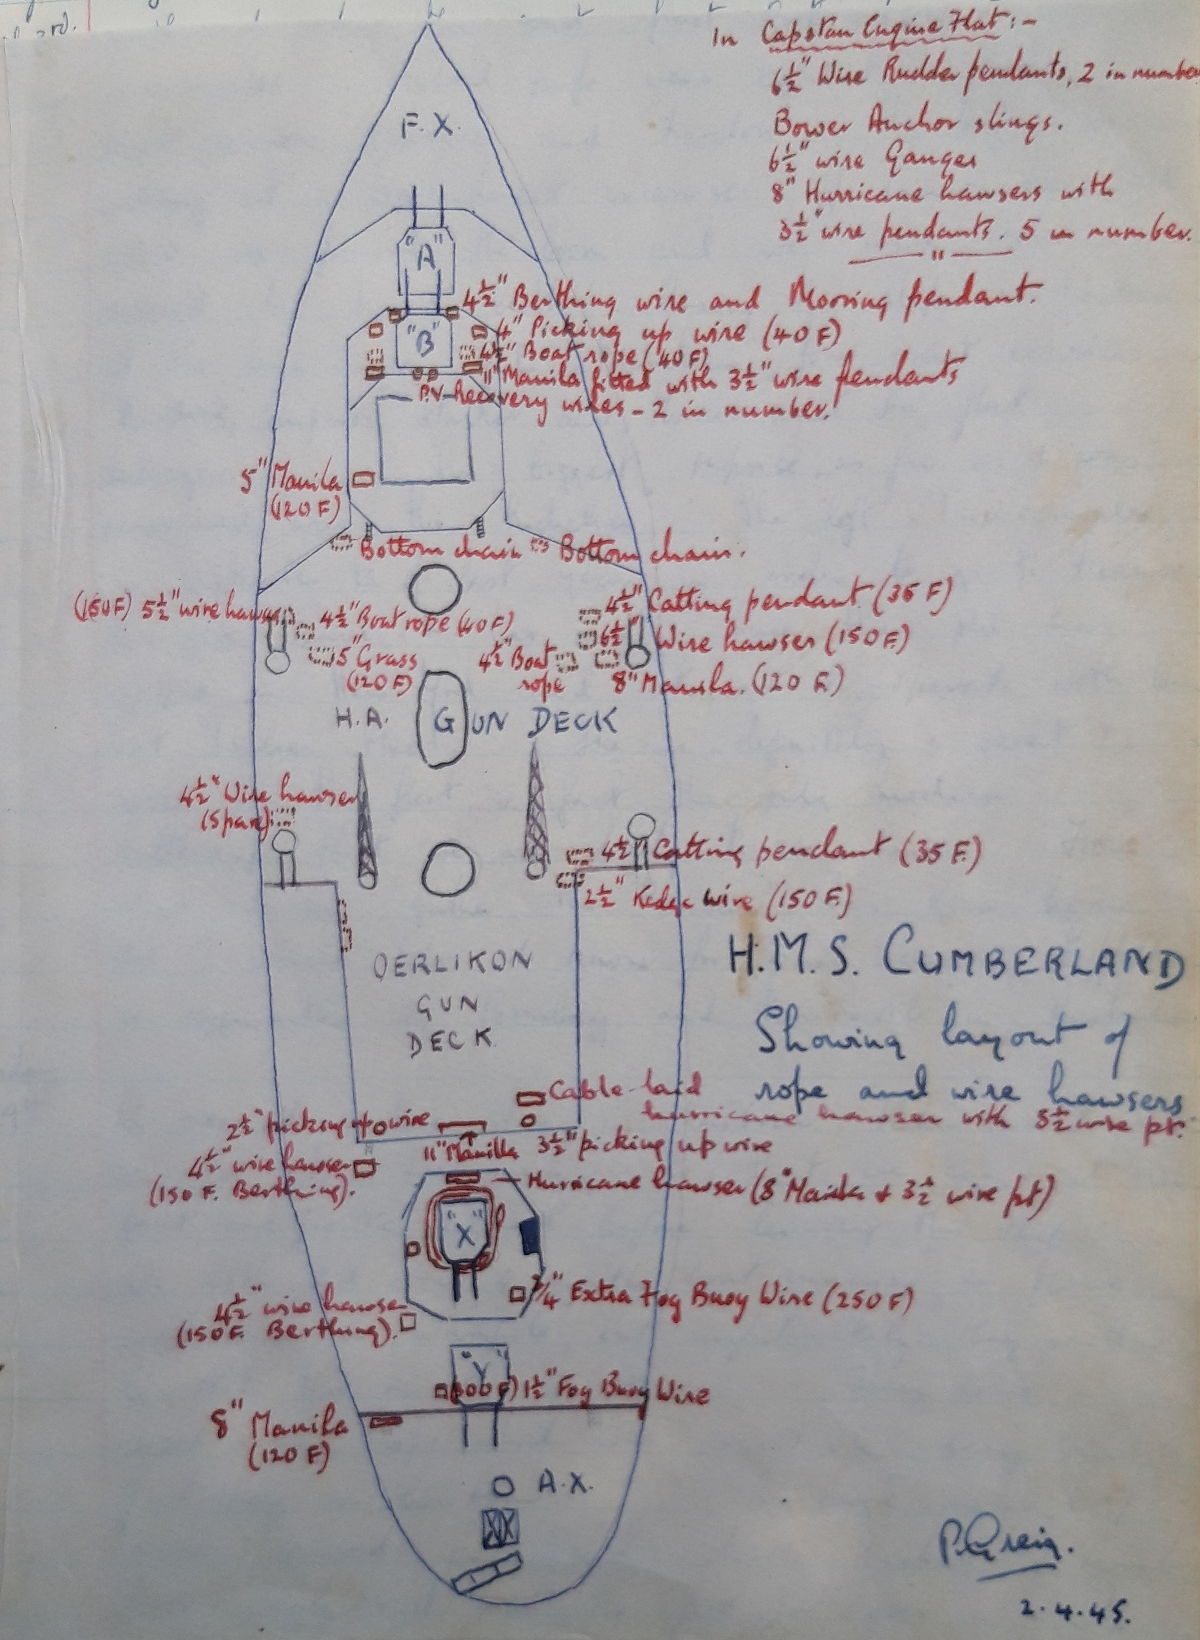 In Capstan Engine Flat :-
6½" Wire Rudder pendants, 2 in number
Bower Anchor slings.
6½" wire Ganger
8" Hurricane hawsers with
3½" wire pendants. 5 in number.
"
F.X.
"A"
4½" Berthing wire and Mooring pendant.
"B"
4" Picking up wire (40 F)
4½" Boat rope (40 F)
11" Manila fitted with 3½" wire pendants
P.V. Recovery wires - 2 in number.
5" Manila
(120 F)
Bottom chain
Bottom chain.
(150F) 5½" wire hawser
4½" Boat rope (40 F)
5" Grass
(120 F)
4½" Catting pendant (35 F)
6½" Wire hawser (150 F.)
4½" Boat
rope
8" Manila. (120 F.)
H.A. GUN DECK
4½" Wire hawser
(Spare)
4½" Catting pendant (35 F.)
2½" Kedge wire (150 F.)
OERLIKON
GUN
DECK
H.M.S. CUMBERLAND
Showing layout of
rope and wire hawsers
Cable-laid
hurricane hawser with 3½ wire pt.
2½" picking up wire
11" Manilla
3½" picking up wire
4½" wire hawser
(150 F. Berthing).
Hurricane hawser (8" Manila & 3½ wire pt)
"X"
¾" Extra Fog Buoy Wire (250 F)
4½" wire hawse
(150 F. Berthing).
"Y"
(300 F) 1½" Fog Buoy Wire
8" Manila
(120 F)
A.X.
P. Greig.
2.4.45.